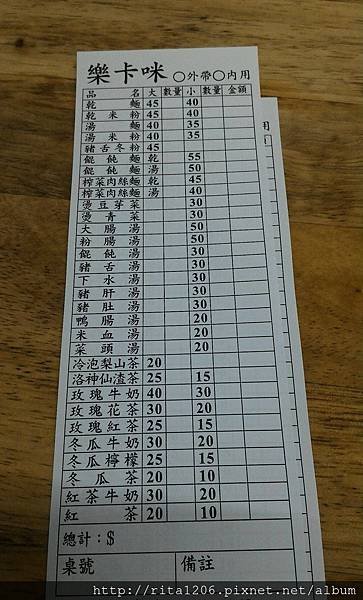 樂卡咪 ○外帶○內用
品名 大 數量 小 數量 金額
乾麵 45 40
乾米粉 45 40
湯麵 40 35
湯米粉 40 35
豬舌冬粉 45
餛飩麵 乾 55
餛飩麵 湯 50
榨菜肉絲麵 乾 45
榨菜肉絲麵 湯 40
燙豆芽菜 30
燙青菜 30
大腸湯 50
粉腸湯 50
餛飩湯 30
豬舌湯 30
下水湯 30
豬肝湯 30
豬肚湯 30
鴨腸湯 20
米血湯 20
菜頭湯 20
冷泡梨山茶 20
洛神仙渣茶 25 15
玫瑰牛奶 40 30
玫瑰花茶 30 20
玫瑰紅茶 25 15
冬瓜牛奶 30 20
冬瓜檸檬 25 15
冬瓜茶 20 10
紅茶牛奶 30 20
紅茶 20 10
總計：$
桌號 備註
用
http://rita1206.pixnet.net/album